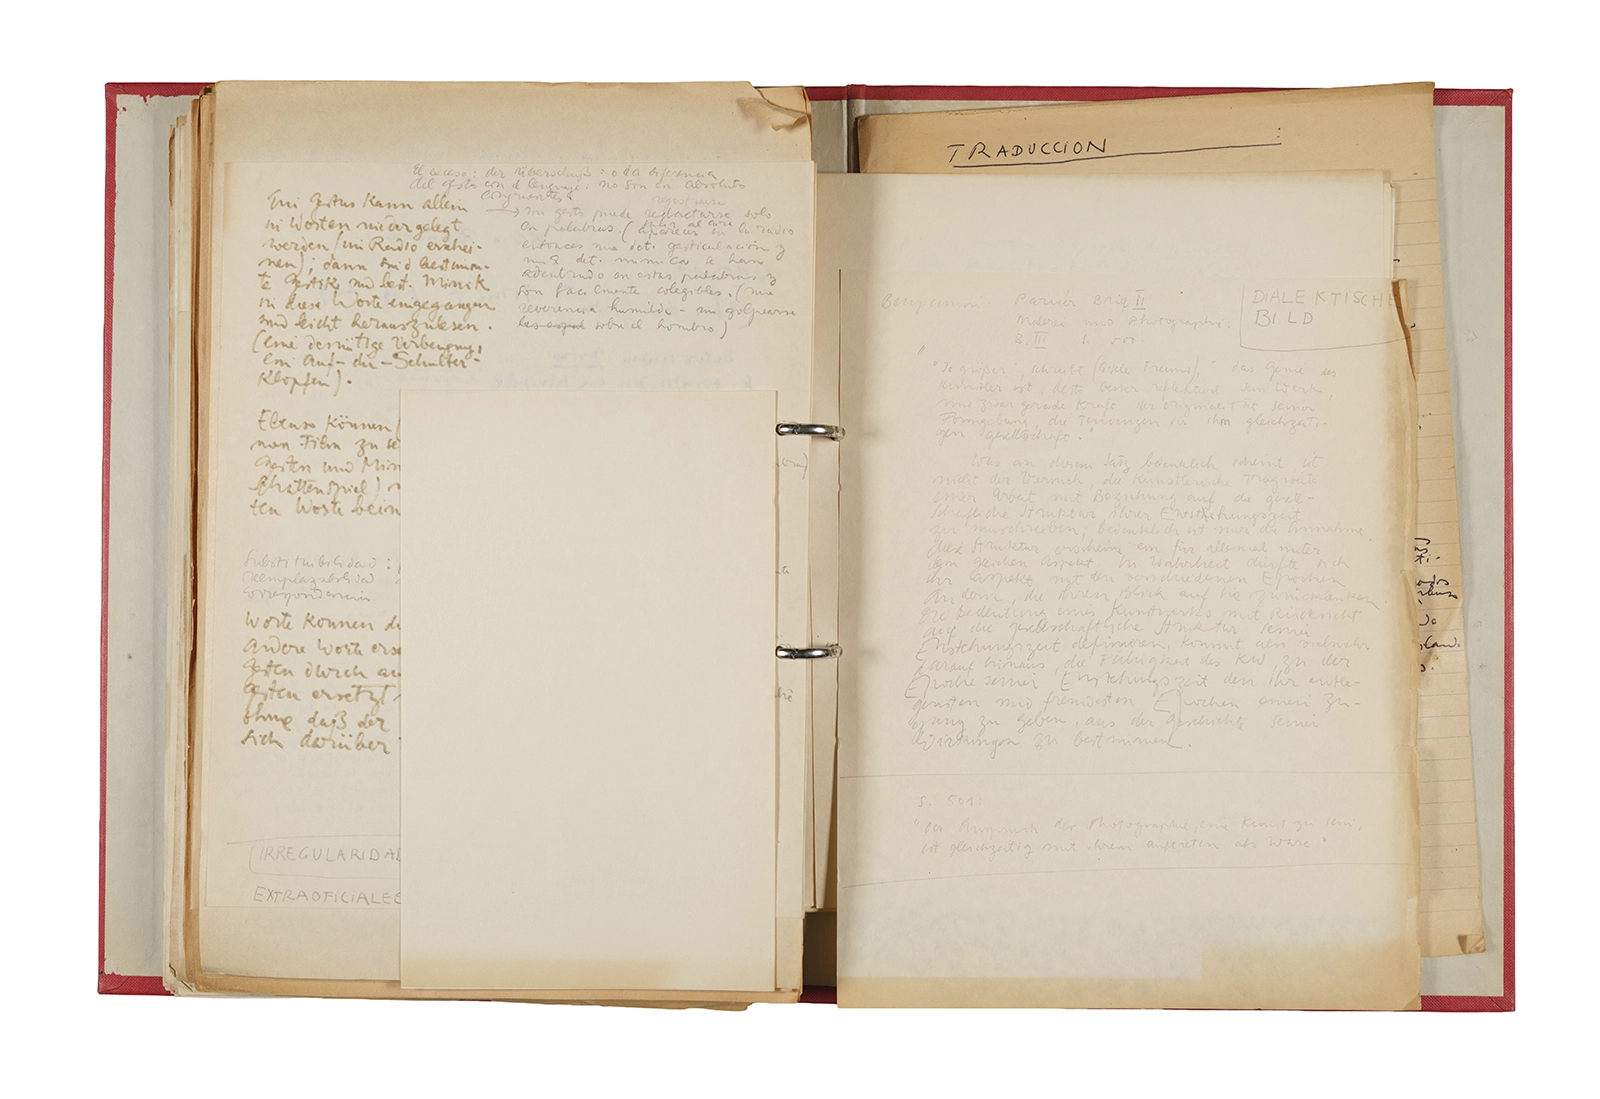 El exceso: der Überschuß: o la diferencia
del gesto con el lenguaje: no son en absoluto
congruentes
Ein Gestus kann allein
in Worten niedergelegt
werden (im Radio erschei-
nen); dann sind bestimm-
te Gestik und best. Mimik
in diese Worte eingegangen
und leicht herauszulesen.
(eine demütige Verbeugung,
ein Auf-die-Schulter-
Klopfen).
registrarse
→ un gesto puede solo
en palabras. (aparecer en la radio
salir al aire
entonces una det. gesticulación y
una det. mímica se han
adentrado en estas palabras y
son facilmente colegibles. (una
reverencia humilde - un golpearse
sobre el hombro)
Ebenso können
man Film zu se
Gesten und Mim
Schattenspiel)
ten Worte bein
Substituibilidad:
reemplazabilidad
correspondencia
Worte können du
andere Worte erse
Gesten durch an
Gesten ersetzt
ohne daß der
sich darüber
IRREGULARIDAD
EXTRAOFICIALES
TRADUCCION
DIALEKTISCHE
BILD
Benjamin Pariser Brief II
Malerei und Photographie.
B. III S. 501.
"Je größer, schreibt (Gisèle Freund), "das Genie des
Künstler ist, desto besser reflektiert sein Werk,
und zwar gerade kraft der Originalität seiner
Formgebung, die Tendenzen der ihm gleichzeiti-
gen Gesellschaft".
Was an diesem Satz bedenklich scheint ist
nicht der Versuch, die künstlerische Tragweite
einer Arbeit mit Beziehung auf die gesell-
schaftliche Struktur ihrer Entstehungszeit
zu umschreiben, bedenklich ist nur die Annahme,
diese Struktur erscheine ein für allemal unter
dem gleichen Aspekt. In Wahrheit dürfte sich
ihr Aspekt mit den verschiedenen Epochen
ändern, die ihren Blick auf sie zurücklenken.
Die Bedeutung eines Kunstwerks mit Rücksicht
auf die gesellschaftliche Struktur seiner
Entstehungszeit definieren, kommt also vielmehr
darauf hinaus, die Fähigkeit des KW, zu der
Epoche seiner Entstehungszeit den ihr entle-
gensten und fremdesten Epochen einen Zu-
gang zu geben, aus der Geschichte seiner
Wirkungen zu bestimmen.
S. 501:
"Der Anspruch der Photographie, eine Kunst zu sein,
ist gleichzeitig mit ihrem Auftreten als Ware"